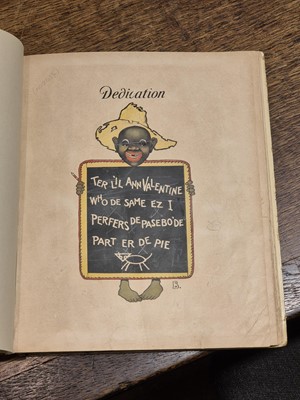 Dedication
TER LIL ANN VALENTINE
WHO DE SAME EZ I
PERFERS DE PASEBO'DE
PART ER DE PIE